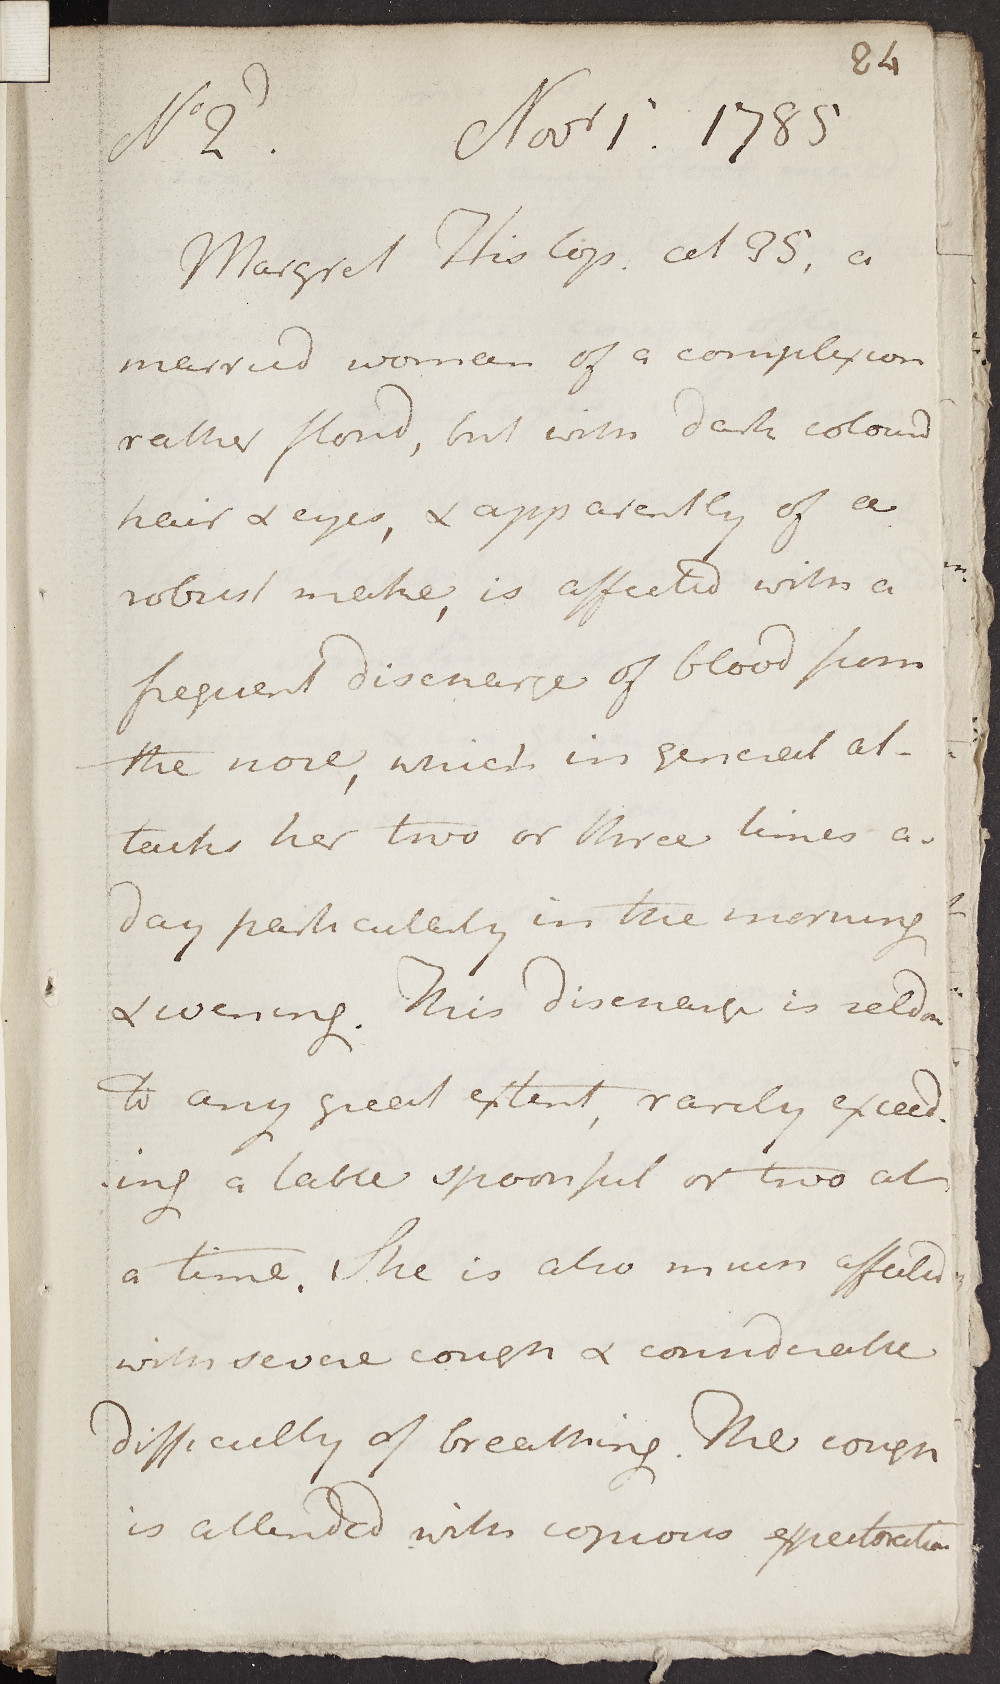 84
No 2d. Novr 1. 1785
Margret Hislop. aet 35, a
married woman of a complexion
rather florid, but with dark colourd
hair & eyes, & apparently of a
robust make, is affected with a
frequent discharge of blood from
the nose, which in general at-
tacks her two or three times a-
day particularly in the morning
& evening. This discharge is seldom
to any great extent, rarely exceed-
ing a table spoonful or two at
a time. She is also much affected
with severe cough & considerable
difficulty of breathing. The cough
is attended with copious expectoration